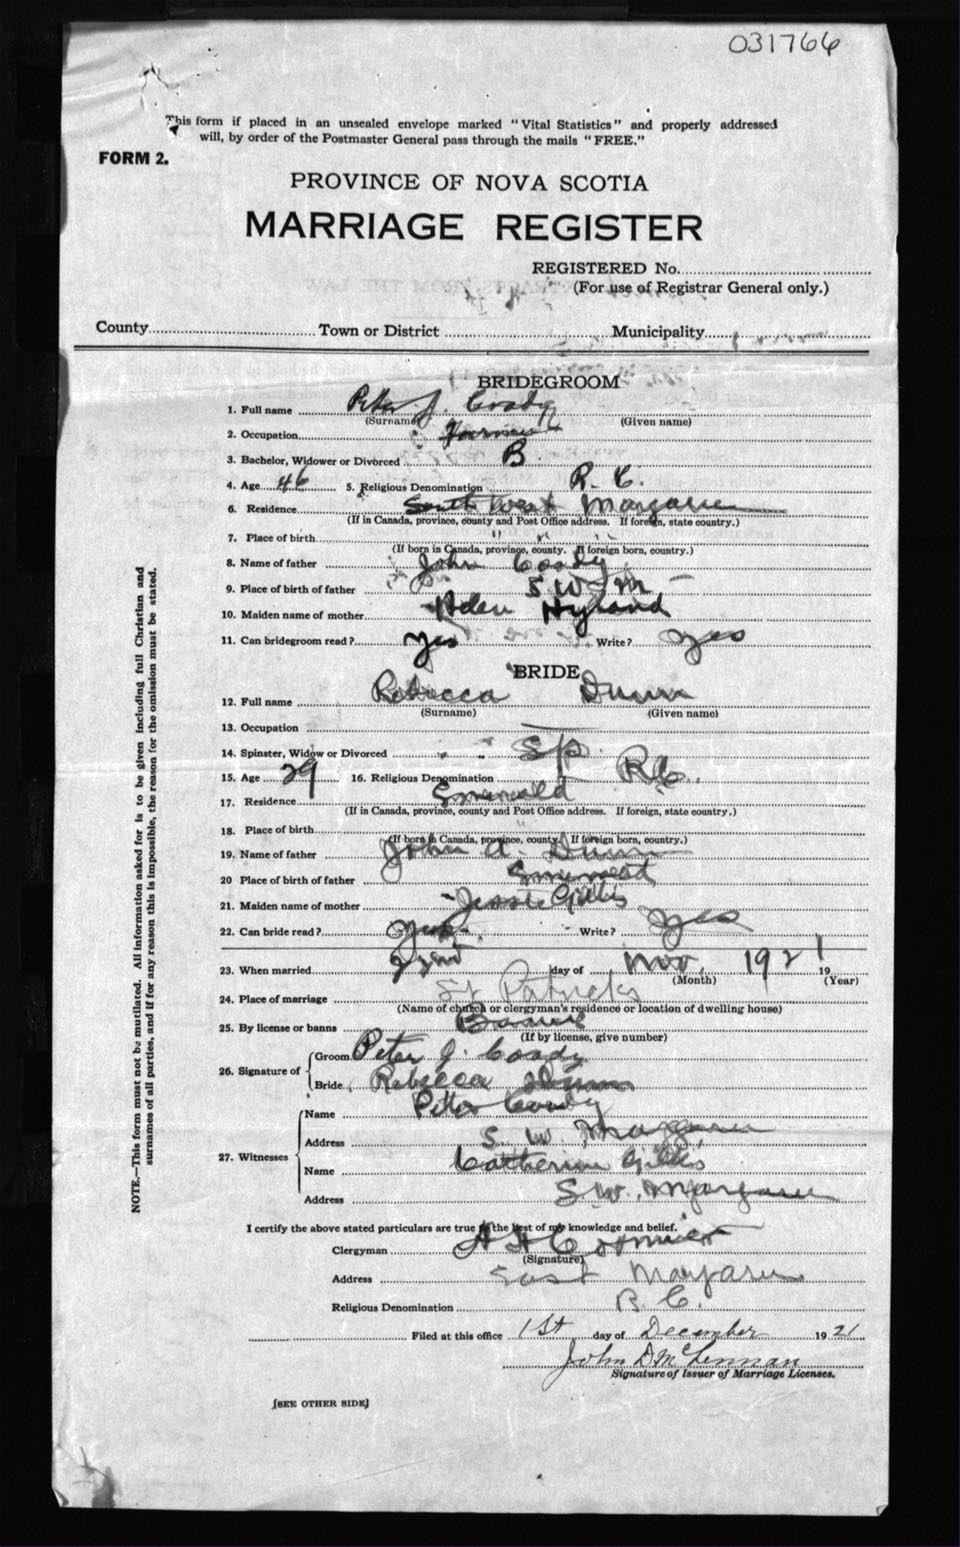 031766
This form if placed in an unsealed envelope marked "Vital Statistics" and properly addressed
will, by order of the Postmaster General pass through the mails "FREE."
FORM 2.
PROVINCE OF NOVA SCOTIA
MARRIAGE REGISTER
REGISTERED No.
(For use of Registrar General only.)
County Town or District Municipality
BRIDEGROOM
1. Full name Peter J. Coady
(Surname) (Given name)
2. Occupation Farmer
3. Bachelor, Widower or Divorced B.
4. Age 46 5. Religious Denomination R. C.
6. Residence South West Margaree
(If in Canada, province, county and Post Office address. If foreign, state country.)
7. Place of birth " " "
(If born in Canada, province, county. If foreign born, country.)
8. Name of father John Coady
9. Place of birth of father S W M
10. Maiden name of mother Helen Hyland
11. Can bridegroom read? Yes Write? Yes
BRIDE
12. Full name Rebecca Dunn
(Surname) (Given name)
13. Occupation
14. Spinster, Widow or Divorced Sp
15. Age 29 16. Religious Denomination RC.
17. Residence Emerald
(If in Canada, province, county and Post Office address. If foreign, state country.)
18. Place of birth "
(If born in Canada, province, county. If foreign born, country.)
19. Name of father John A. Dunn
20 Place of birth of father Emerald
21. Maiden name of mother Jessie Gillis
22. Can bride read? Yes Write? Yes
23. When married 22nd day of Nov. 1921 19
(Month) (Year)
24. Place of marriage St Patricks
(Name of church or clergyman's residence or location of dwelling house)
25. By license or banns Banns
(If by license, give number)
26. Signature of Groom Peter J. Coady
Bride Rebecca Dunn
27. Witnesses Name Peter Coady
Address S. W. Margaree
Name Catherine Gillis
Address S.W. Margaree
I certify the above stated particulars are true to the best of my knowledge and belief.
Clergyman A H Cormier
(Signature)
Address East Margaree
Religious Denomination R. C.
Filed at this office 1st day of December 1921
John D McLennan
Signature of Issuer of Marriage Licenses.
[SEE OTHER SIDE]
NOTE.—This form must not be mutilated. All information asked for is to be given including full Christian and
surnames of all parties, and if for any reason this is impossible, the reason for the omission must be stated.